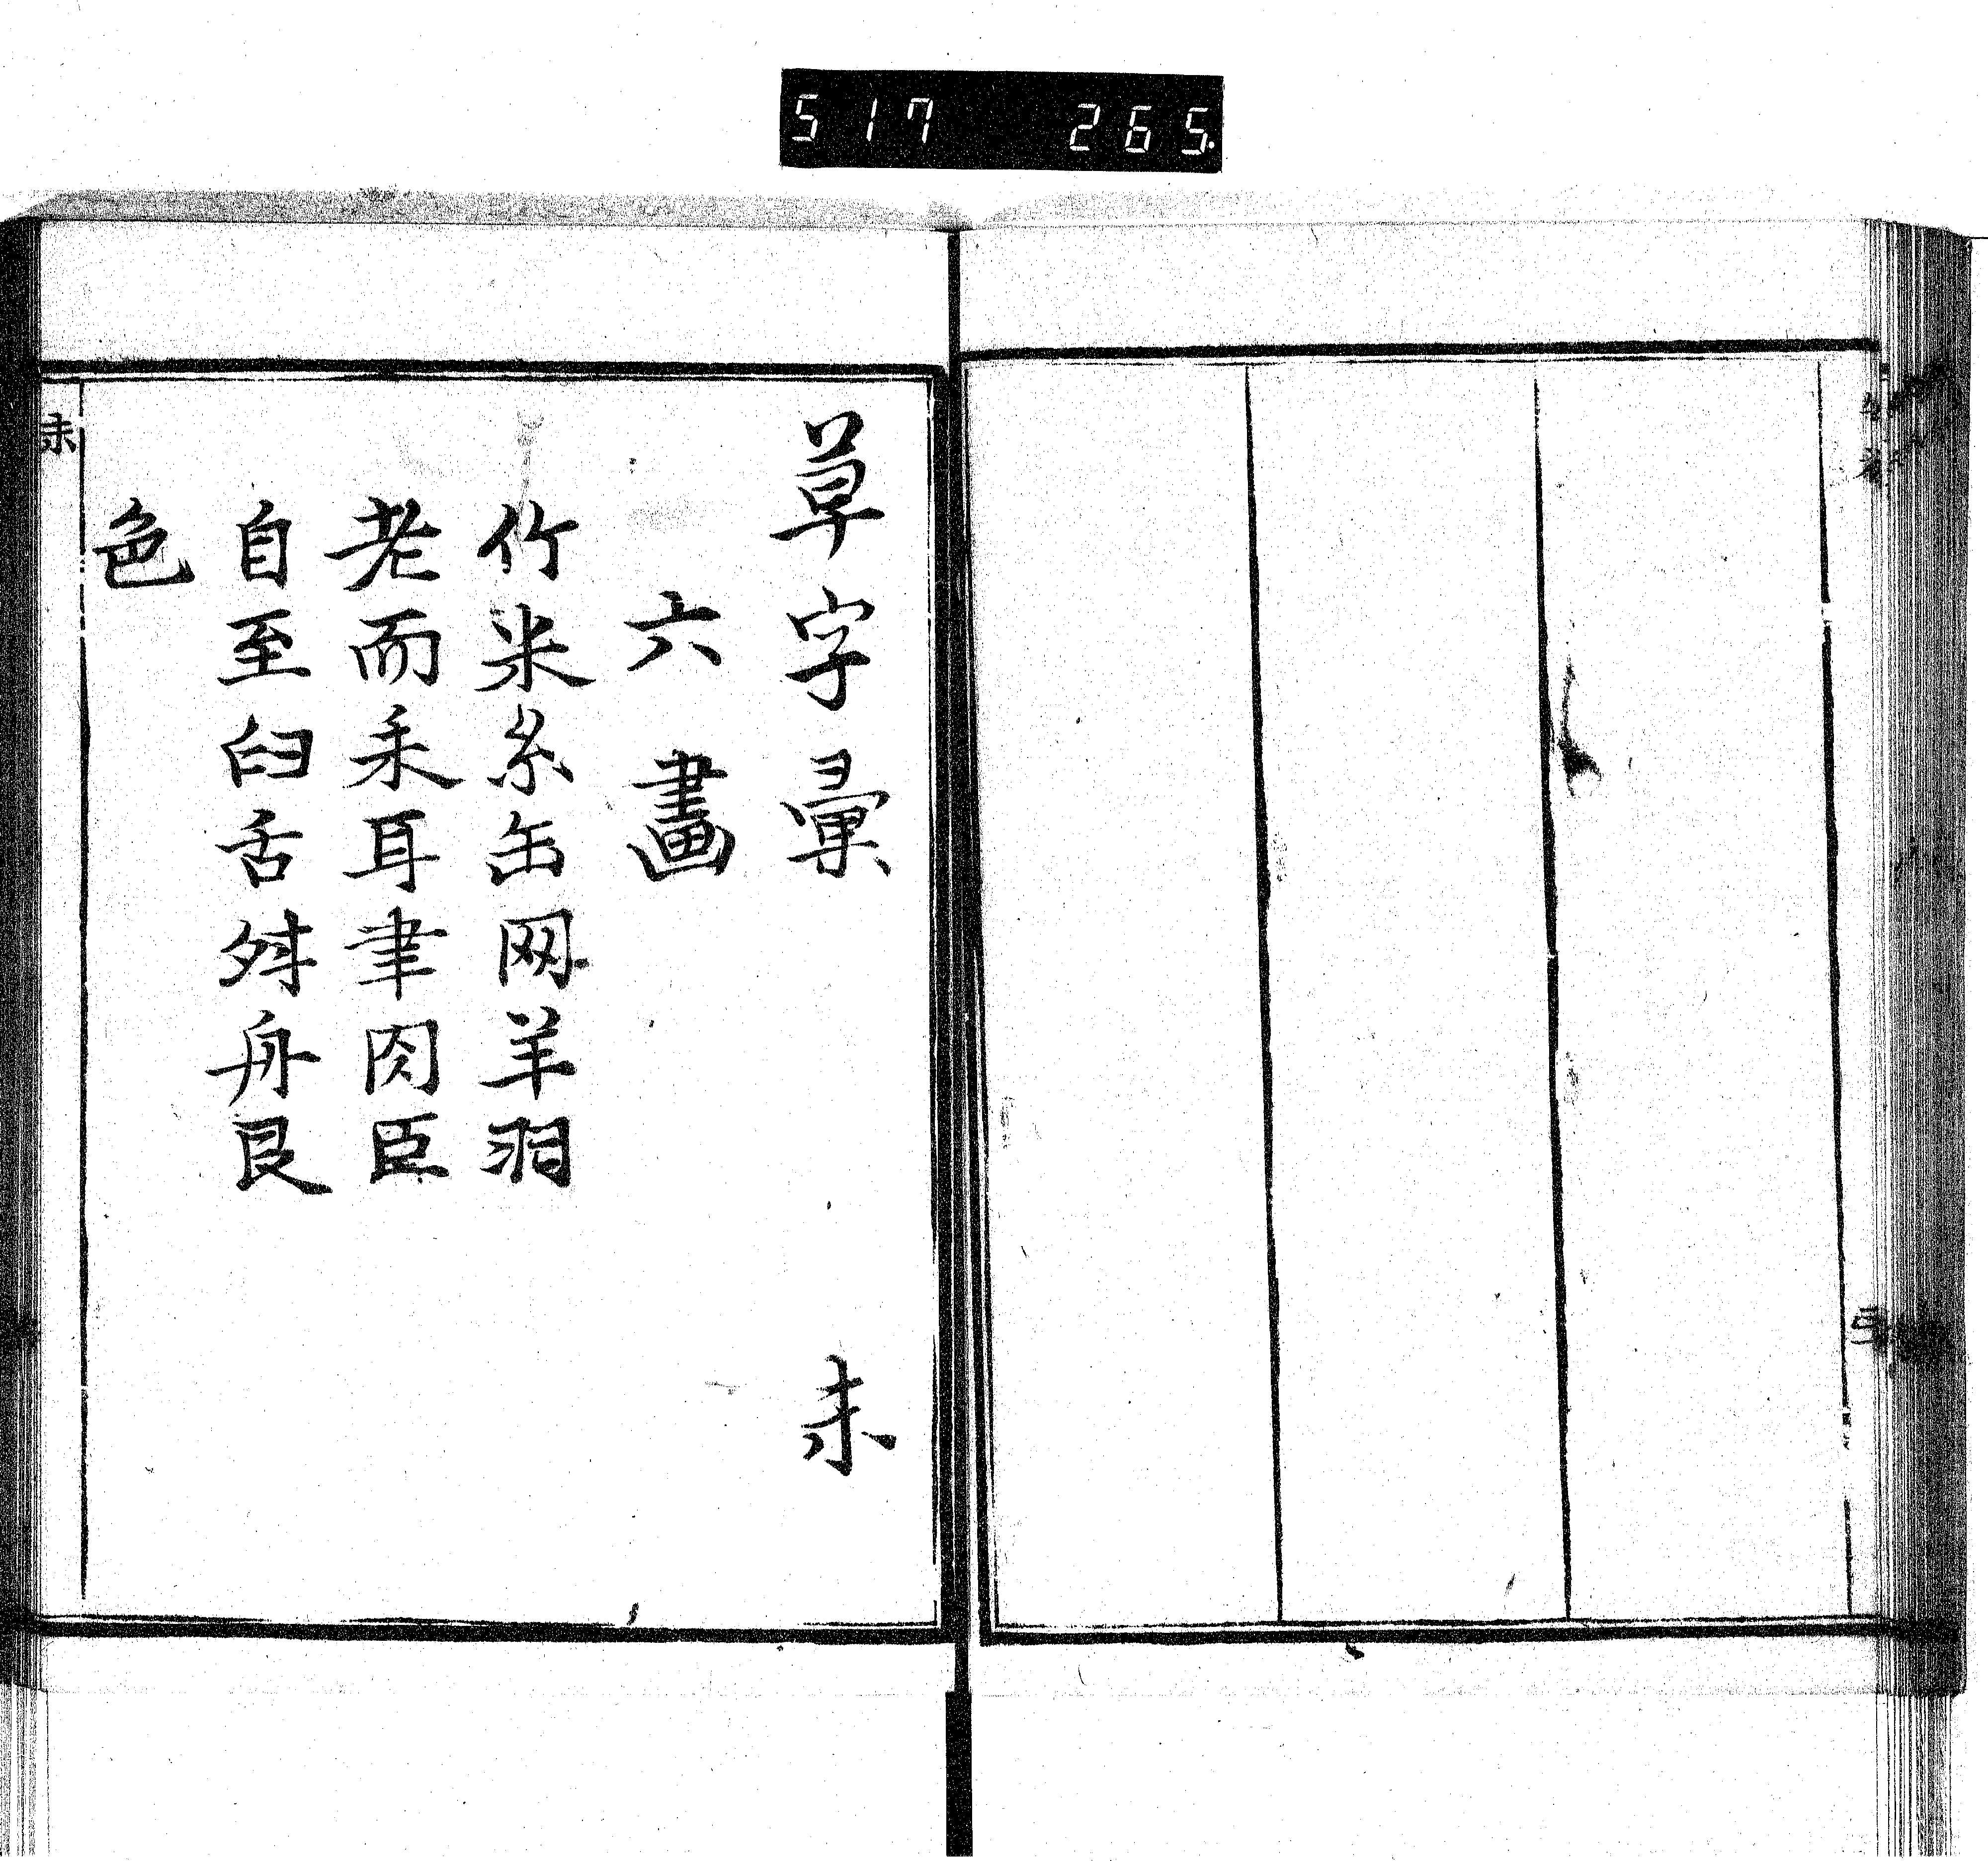 517 265
草字彙 未
六畫
竹米糸缶网羊羽
老而耒耳聿肉臣
自至臼舌舛舟艮
色
未